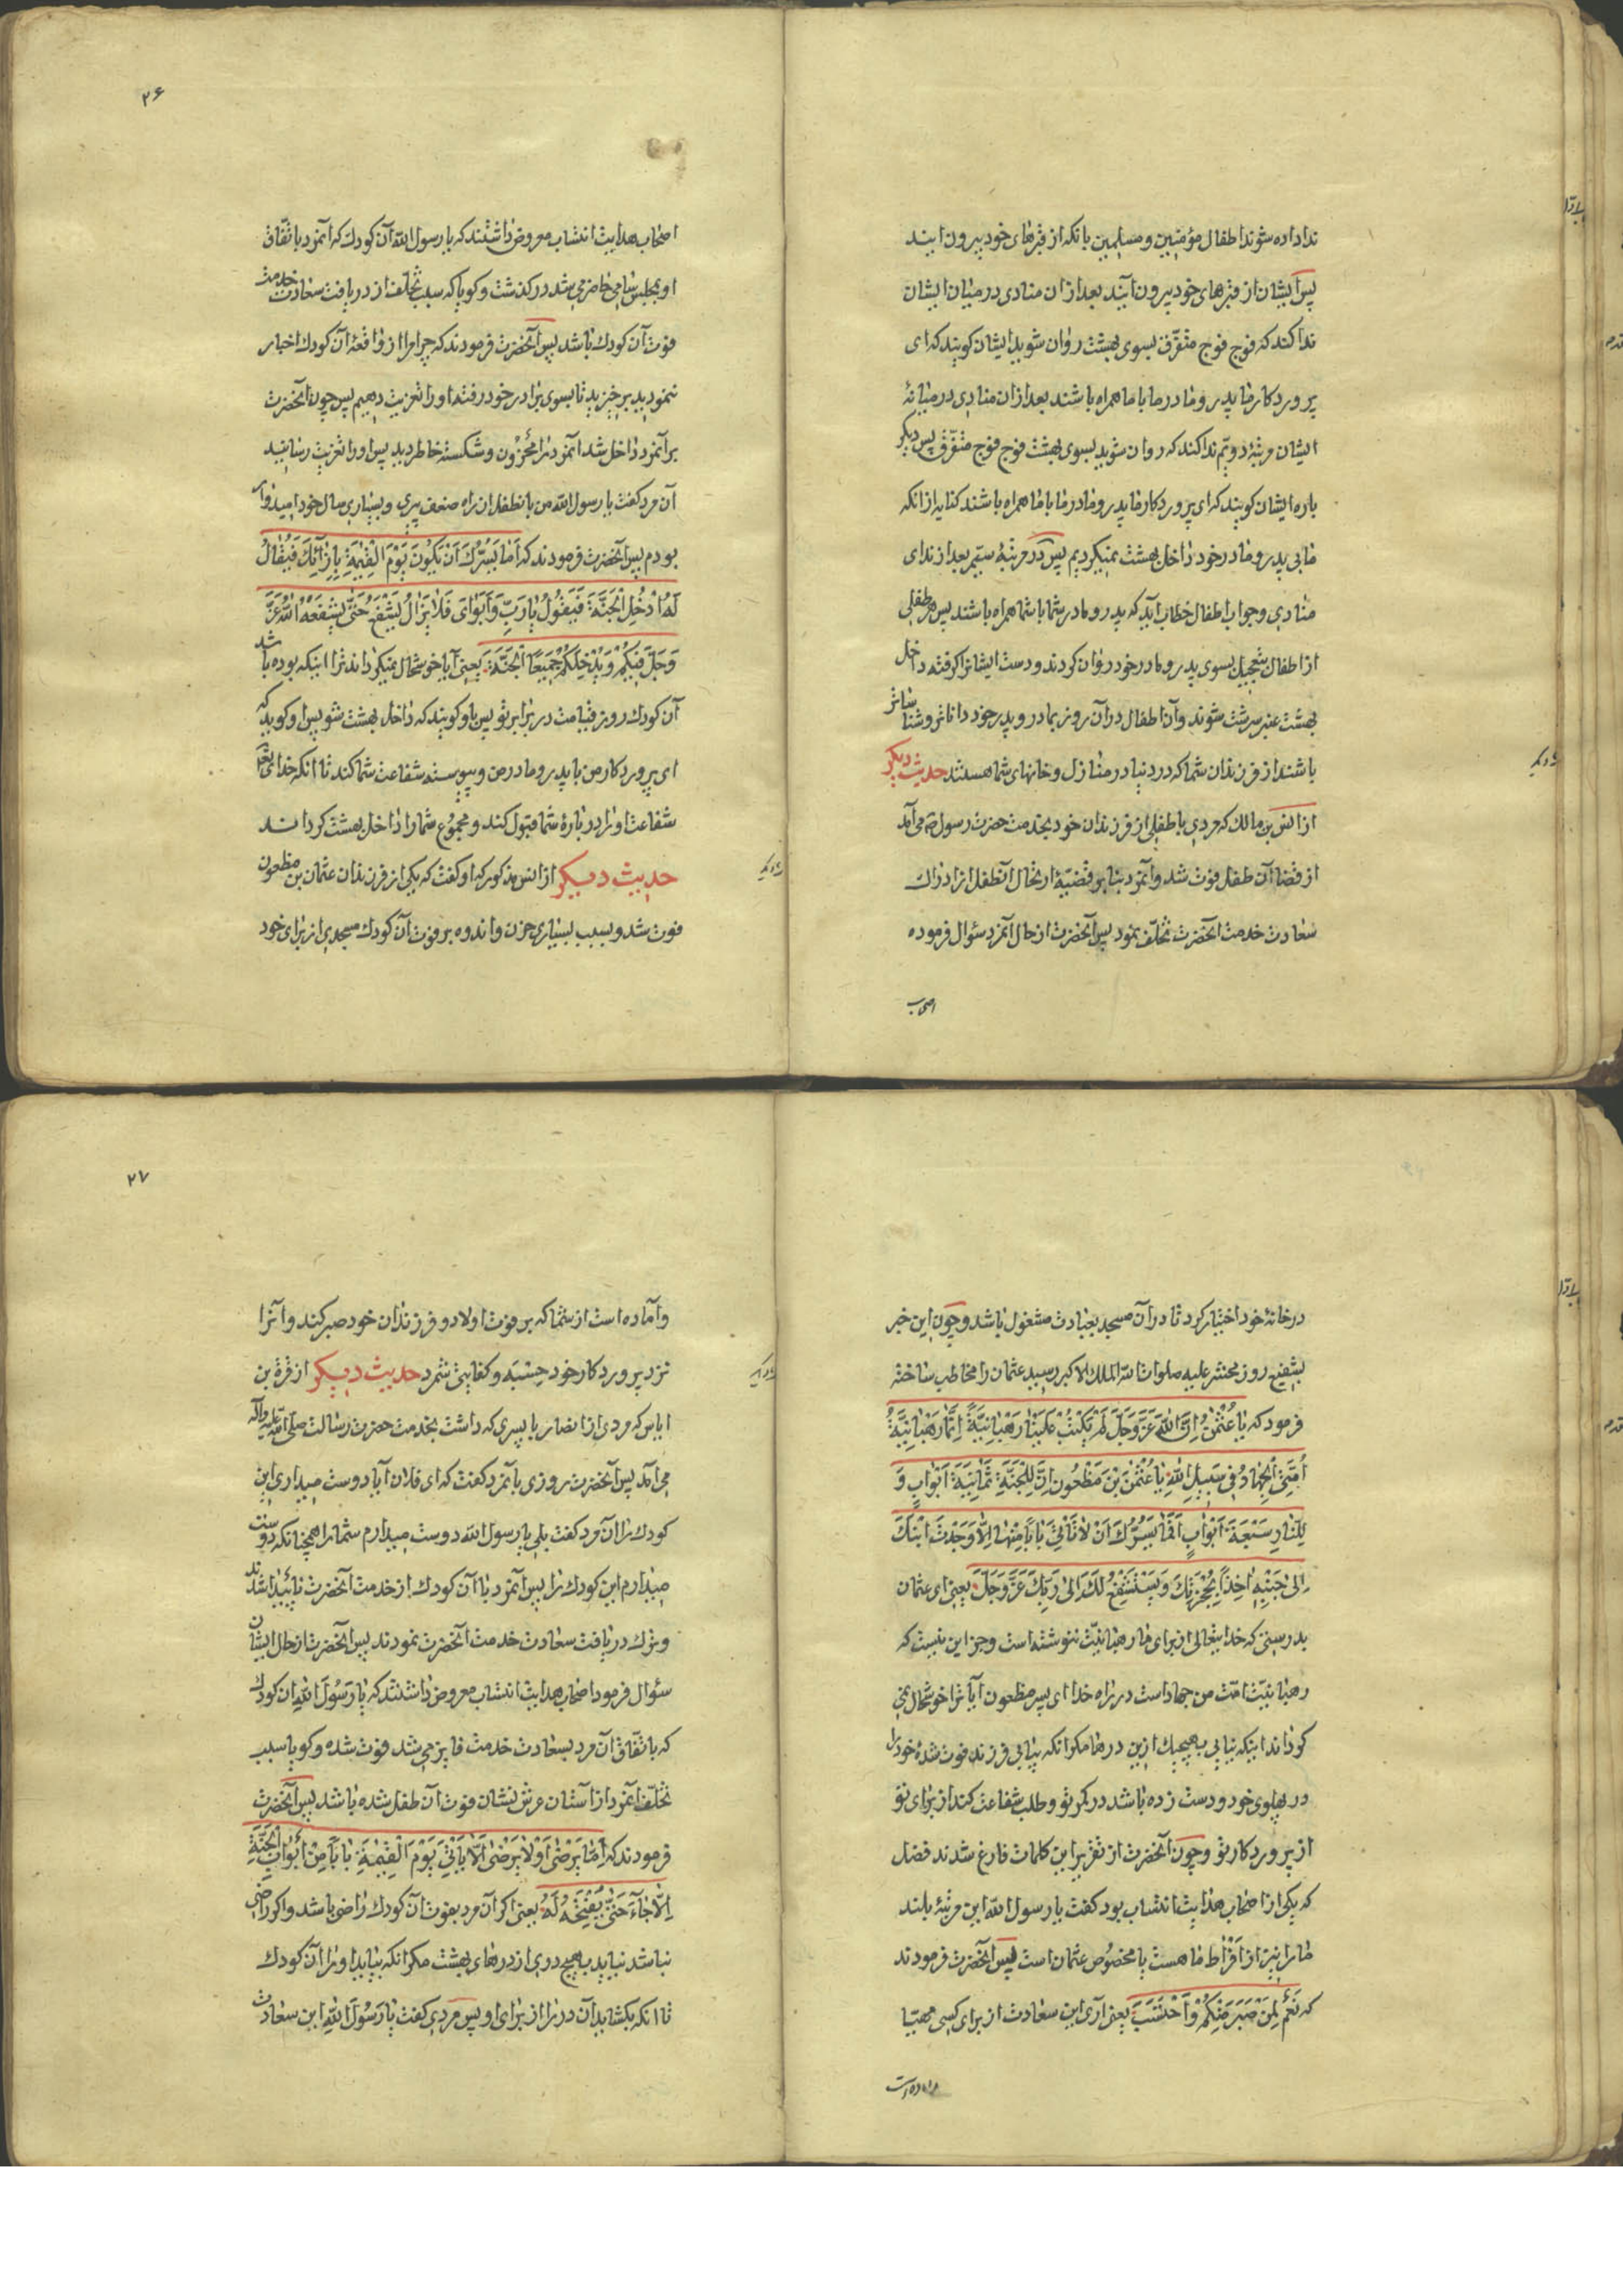 ندا داده شوند اطفال مؤمنین و مسلمین بانکه از قبرهای خود بیرون ایند
پس ایشان از قبرهای خود بیرون آیند بعد از ان منادی در میان ایشان
ندا کند که فوج فوج متفرّق بسوی بهشت روان شوید ایشان کویند که ای
پروردکار ما پدر و مادر ما با ما همراه باشند بعد از ان منادی در میانهٔ
ایشان مرتبهٔ دویّم ندا کند که روان شوید بسوی بهشت فوج فوج متفرّق پس دیکر
باره ایشان کویند که ای پروردکار ما پدر و مادر ما با ما همراه باشند کنایه از انکه
ما بی پدر و مادر خود داخل بهشت نمیکردیم پس در مرتبهٔ سیّم بعد از ندای
منادی و جواب اطفال خطاب آید که پدر و مادر شما با شما همراه باشند پس هر طفلی
از اطفال بتعجیل بسوی پدر و مادر خود روان کردند و دست ایشانرا کرفته داخل
بهشت عنبر سرشت شوند و آن اطفال در آن روز بمادر و پدر خود داناتر و شناساتر
باشند از فرزندان شما که در دنیا در منازل و خانهای شما هستند حدیث دیکر
از انس بن مالک که مردی با طفلی از فرزندان خود بخدمت حضرت رسول ص می آمد
از قضا آن طفل فوت شد و آنمرد بنا بر قضیّهٔ ارتحال آنطفل از ادراک
سعادت خدمت آنحضرت تخلّف نمود پس آنحضرت از حال آنمرد سئوال فرموده
اصحاب
۲۶
اصحاب هدایت انتساب معروض داشتند که یا رسول الله آن کودک که آنمرد باتّفاق
او بمجلس سامی حاضر می شد در کذشت و کویا که سبب تخلّف از دریافت سعادت خدمت
فوت آن کودک باشد پس آنحضرت فرمودند که چرا مرا از واقعهٔ آن کودک اخبار
ننمودید برخیزید تا بسوی برادر خود رفته او را تعزیت دهیم پس چون آنحضرت
بر آنمرد داخل شد آنمرد را محزون و شکسته خاطر دید پس او را تعزیت رسانید
آن مرد کفت یا رسول الله من بانطفل از راه ضعف پیری و بسیاری سال خود امیدوار
بودم پس آنحضرت فرمودند که اَما یَسُرُّكَ اَنْ یَکُونَ یَوْمَ الْقِیٰمَةِ بِاِزٰائِكَ فَیُقٰالُ
لَهُ ادْخُلِ الْجَنَّةَ فَیَقُولُ یٰا رَبِّ وَاَبَوٰایَ فَلٰا یَزٰالُ یَشْفَعُ حَتّٰی یُشَفِّعَهُ اللهُ عَزَّ
وَجَلَّ فِیکُمْ وَیُدْخِلَکُمْ جَمِیعًا الْجَنَّةَ یعنی آیا خوشحال نمیکرداند ترا اینکه بوده باشد
آن کودک روز قیامت در برابر تو پس باو کویند که داخل بهشت شو پس او کوید که
ای پروردکار من با پدر و مادر من و پیوسته شفاعت شما کند تا انکه خدای تعالی
شفاعت او را در بارهٔ شما قبول کند و مجموع شما را داخل بهشت کرداند
حدیث دیکر از انس مذکور که او کفت که یکی از فرزندان عثمان بن مظعون
فوت شد و بسبب بسیاری حزن و اندوه بر فوت آن کودک مسجدی از برای خود
در خانهٔ خود اختیار کرد تا در آن مسجد بعبادت مشغول باشد و چون این خبر
بشفیع روز محشر علیه صلوات الله الملک الاکبر رسید عثمان را مخاطب ساخته
فرمود که یٰا عُثْمٰنُ اِنَّ اللهَ عَزَّ وَجَلَّ لَمْ یَکْتُبْ عَلَیْنٰا رَهْبٰانِیَّةً اِنَّمٰا رَهْبٰانِیَّةُ
اُمَّتِی الْجِهٰادُ فِی سَبِیلِ اللهِ یٰا عُثْمٰنَ بْنَ مَظْعُونٍ اِنَّ لِلْجَنَّةِ ثَمٰانِیَةَ اَبْوٰابٍ وَ
لِلنّٰارِ سَبْعَةَ اَبْوٰابٍ اَفَمٰا یَسُرُّكَ اَنْ لٰا تَاْتِیَ بٰابًا مِنْهٰا اِلّٰا وَجَدْتَ ابْنَكَ
اِلیٰ جَنْبِهِ اٰخِذًا بِحُجْزَتِكَ وَیَسْتَشْفِعُ لَكَ اِلیٰ رَبِّكَ عَزَّ وَجَلَّ یعنی ای عثمان
بدرستی که خدایتعالی از برای ما رهبانیّت ننوشته است و جز این نیست که
رهبانیّت امّت من جهاد است در راه خدا ای پسر مظعون آیا ترا خوشحال نمی
کرداند اینکه نیایی بهیچیک ازین درها مکر انکه بیابی فرزند فوت شدهٔ خود را
در پهلوی خود و دست زده باشد در کمر تو و طلب شفاعت کند از برای تو
از پروردکار تو و چون آنحضرت از تقریر این کلمات فارغ شدند فضل
که یکی از اصحاب هدایت انتساب بود کفت یا رسول الله این مرتبهٔ بلند
ما را نیز از اَفْرٰاط ما هست یا مخصوص عثمان است پس آنحضرت فرمودند
که نَعَمْ لِمَنْ صَبَرَ مِنْکُمْ وَاحْتَسَبَ یعنی آری این سعادت از برای کسی مهیّا
و اماده است
۲۷
و آماده است از شما که بر فوت اولاد و فرزندان خود صبر کند و آنرا
نزد پروردکار خود حِسْبَه و کفایتی شمرد حدیث دیکر از قرة بن
ایاس که مردی از انصار با پسری که داشت بخدمت حضرت رسالت صلّی الله علیه وآله
می آمد پس آنحضرت روزی بانمرد کفت که ای فلان آیا دوست میداری این
کودک را آن مرد کفت بلی یا رسول الله دوست میدارم شما را همچنانکه دوست
میدارم این کودک را پس آنمرد با آن کودک از خدمت آنحضرت ناپیدا شدند
و ترک دریافت سعادت خدمت آنحضرت نمودند پس آنحضرت از حال ایشان
سئوال فرمود اصحاب هدایت انتساب معروض داشتند که یٰا رَسُولَ اللهِ ان کودک
که باتّفاق آن مرد بسعادت خدمت فایز می شد فوت شده و کویا سبب
تخلّف آنمرد از آستان عرش نشان فوت آن طفل شده باشد پس آنحضرت
فرمودند که اَمٰا یَرْضیٰ اَوْ لٰا یَرْضیٰ اَلّٰا یَاْتِیَ یَوْمَ الْقِیٰمَةِ بٰابًا مِنْ اَبْوٰابِ الْجَنَّةِ
اِلّٰا جٰآءَ حَتّٰی یَفْتَحَهُ لَهُ یعنی اکر آن مرد بفوت آن کودک راضی باشد و اکر راضی
نباشد نیاید بهیچ دری از درهای بهشت مکر انکه بیاید او را آن کودک
تا انکه بکشاید آن در را از برای او پس مردی کفت یٰا رَسُولَ اللهِ این سعادت